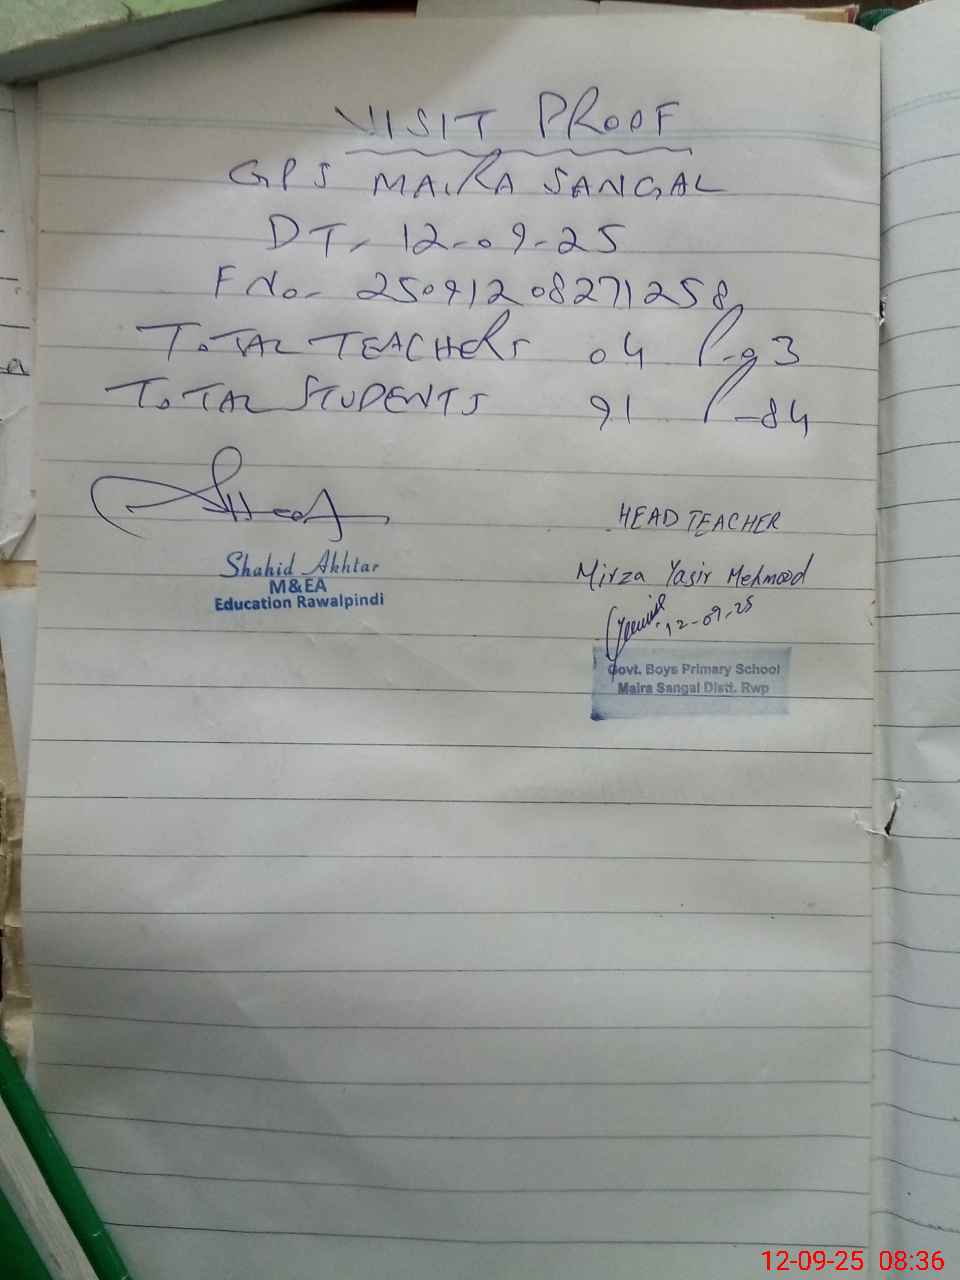 VISIT PROOF
GPS MAIRA SANGAL
DT- 12-09-25
F No- 25091208271258
TOTAL TEACHERS 04 P-03
TOTAL STUDENTS 91 P-84
Shahid Akhtar
M&EA
Education Rawalpindi
HEAD TEACHER
Mirza Yasir Mehmood
12-09-25
Govt. Boys Primary School
Maira Sangal Distt. Rwp
12-09-25 08:36